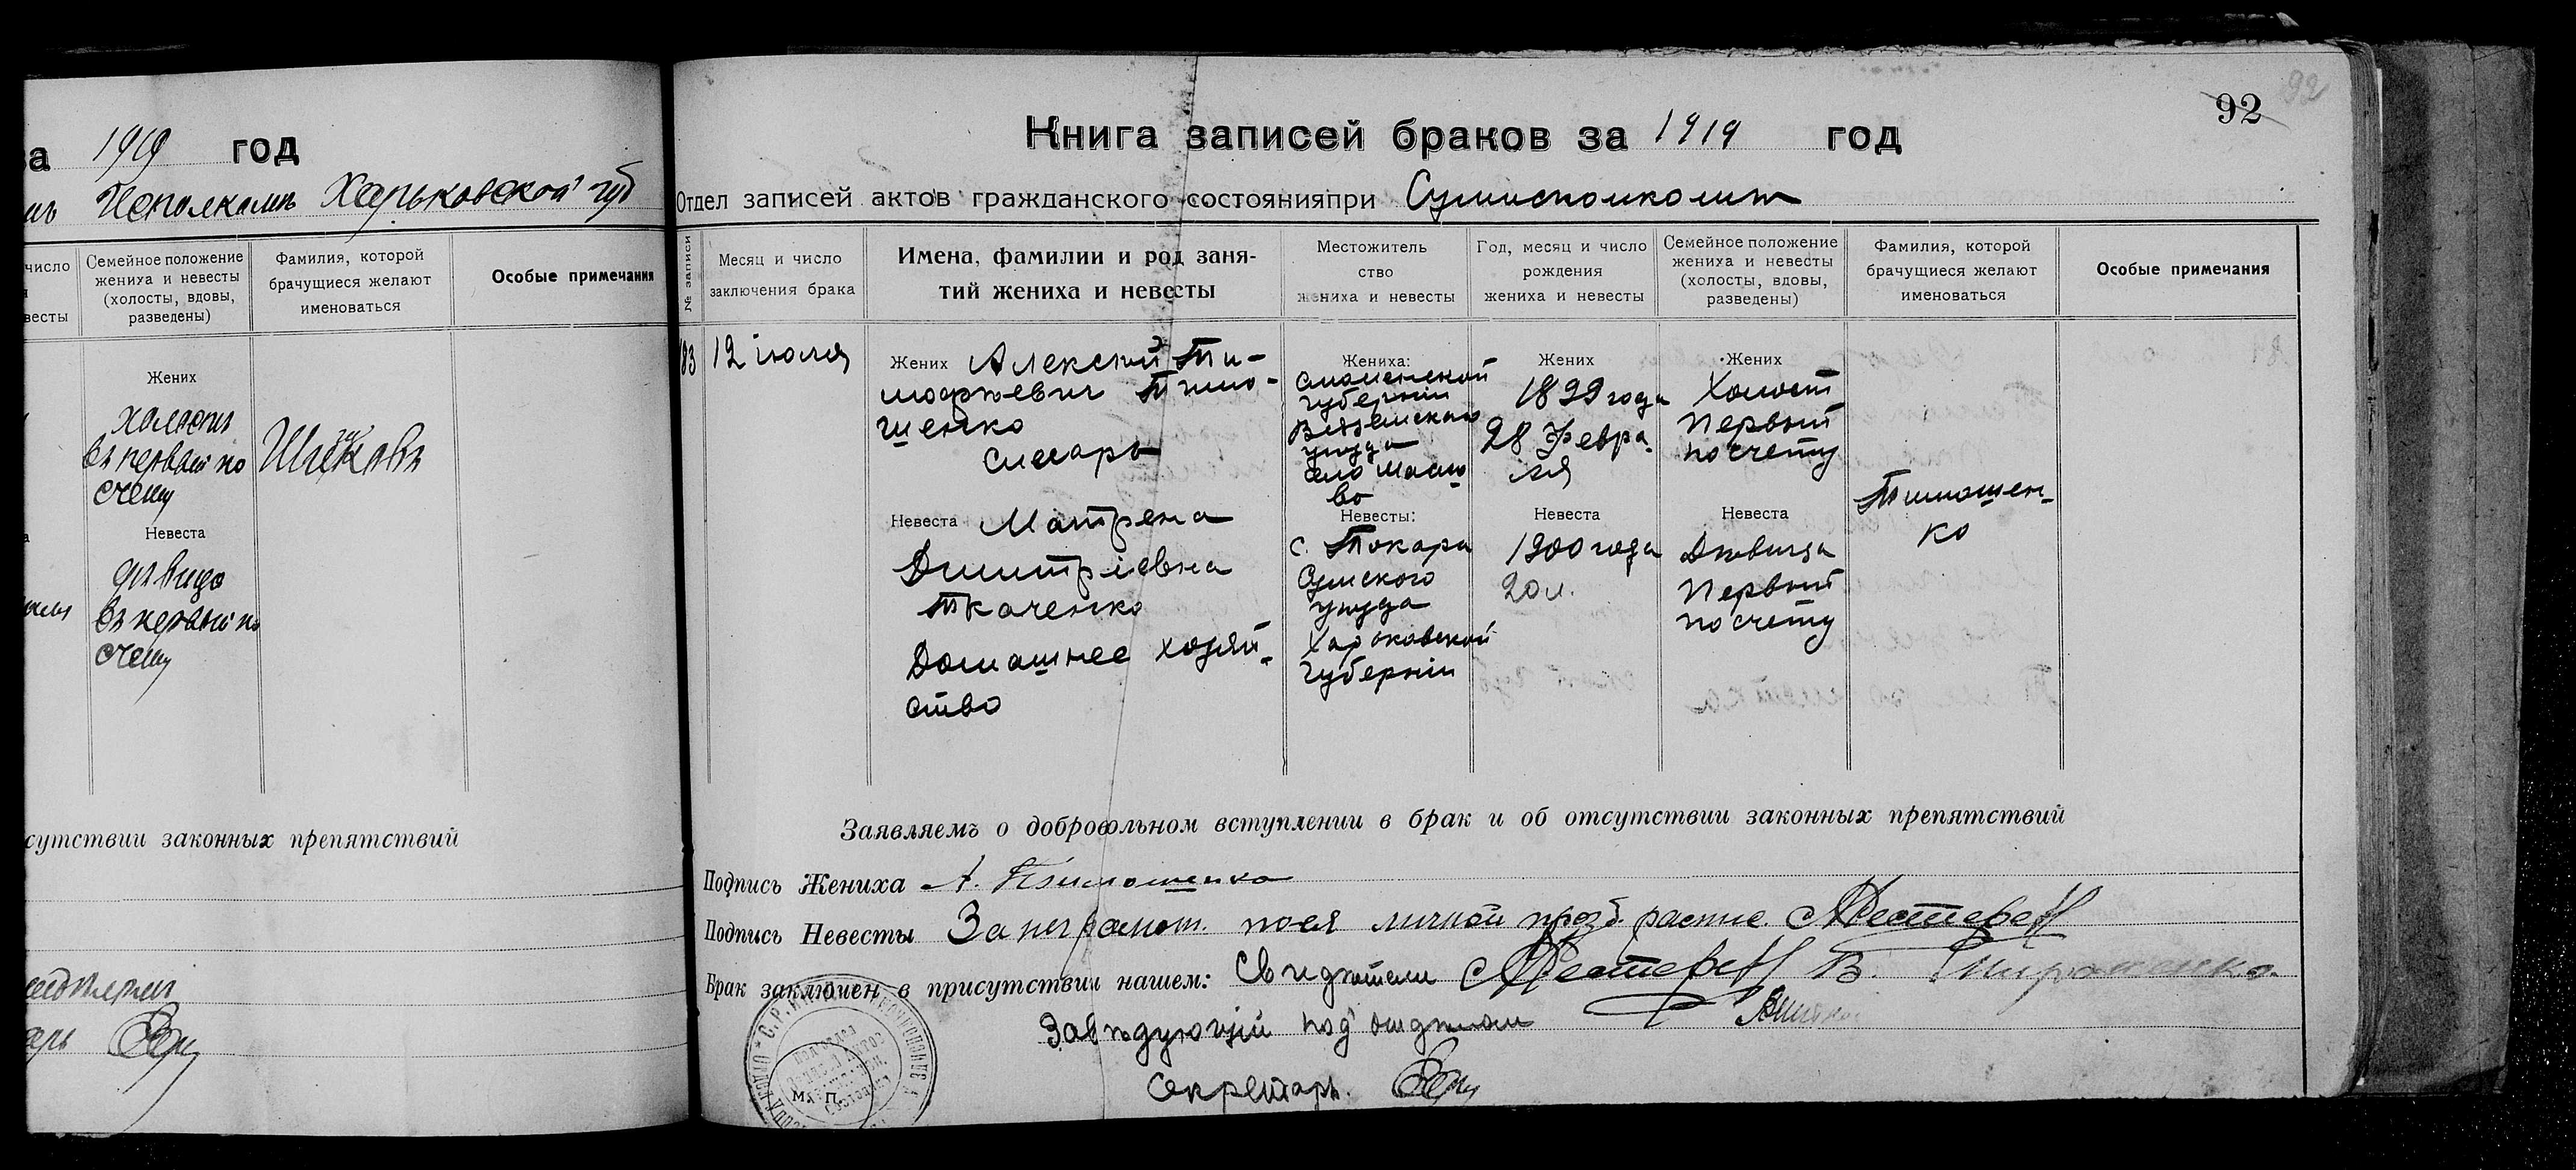 за 1919 год
Исполкомъ Харьковской губ
число
Семейное положение
жениха и невесты
(холосты, вдовы,
разведены)
Фамилия, которой
брачущиеся желают
именоваться
Особые примечания
Жених
холостъ
въ первый по
счету
Невеста
дѣвица
въ первый по
счету
сутствии законных препятствий
92
92
Книга записей браков за 1919 год
Отдел записей актов гражданского состоянияпри Сумисполкомѣ
№ записи
Месяц и число
заключения брака
Имена, фамилии и род заня-
тий жениха и невесты
Местожитель
ство
жениха и невесты
Год, месяц и число
рождения
жениха и невесты
Семейное положение
жениха и невесты
(холосты, вдовы,
разведены)
Фамилия, которой
брачущиеся желают
именоваться
Особые примечания
183
12 июля
Жених Алексей Ти-
мофževич Тимо-
шенко
слесарь
Невеста Матрена
Дмитріевна
Ткаченко
Домашнее хозяй-
ство
Жениха:
Смоленской
губерніи
Вяземскаго
уѣзда
село
Невесты:
с. Токари
Сумского
уѣзда
Харьковской
губерніи
Жених
1899 года
28 Февра-
ля
Невеста
1900 года
20 л.
Жених
Холост
Первый
по счету
Невеста
Дѣвица
Первый
по счету
Тимошен-
ко
Заявляемъ о добровольном вступлении в брак и об отсутствии законных препятствий
Подпись Жениха А. Тимошенко
Подпись Невесты За неграмот. по ея личной прозб. распис.
Брак заключен в присутствии нашем: Свидѣтели
Завѣдующій подъотдѣлом
Секретарь.
М. П.